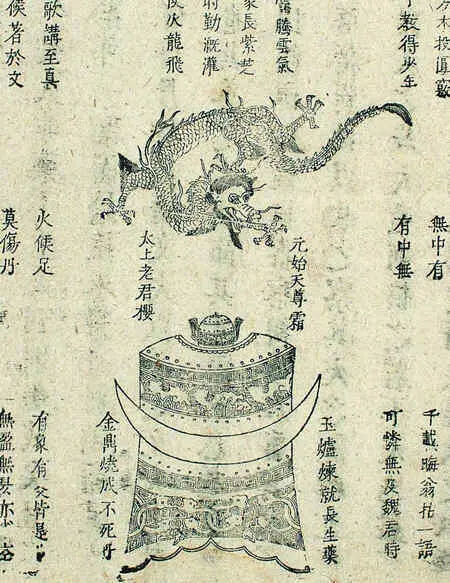 木投
教得少年
騰雲氣
家長紫芝
時勤溉灌
火龍飛
歌講至真
候著於文
無中有
有中無
元始天尊霜
太上老君櫻
火候足
莫傷丹
千載晦翁拈一語
可憐無及魏君時
玉爐煉就長生藥
金鼎燒成不死丹
有象有爻皆是
無盈無